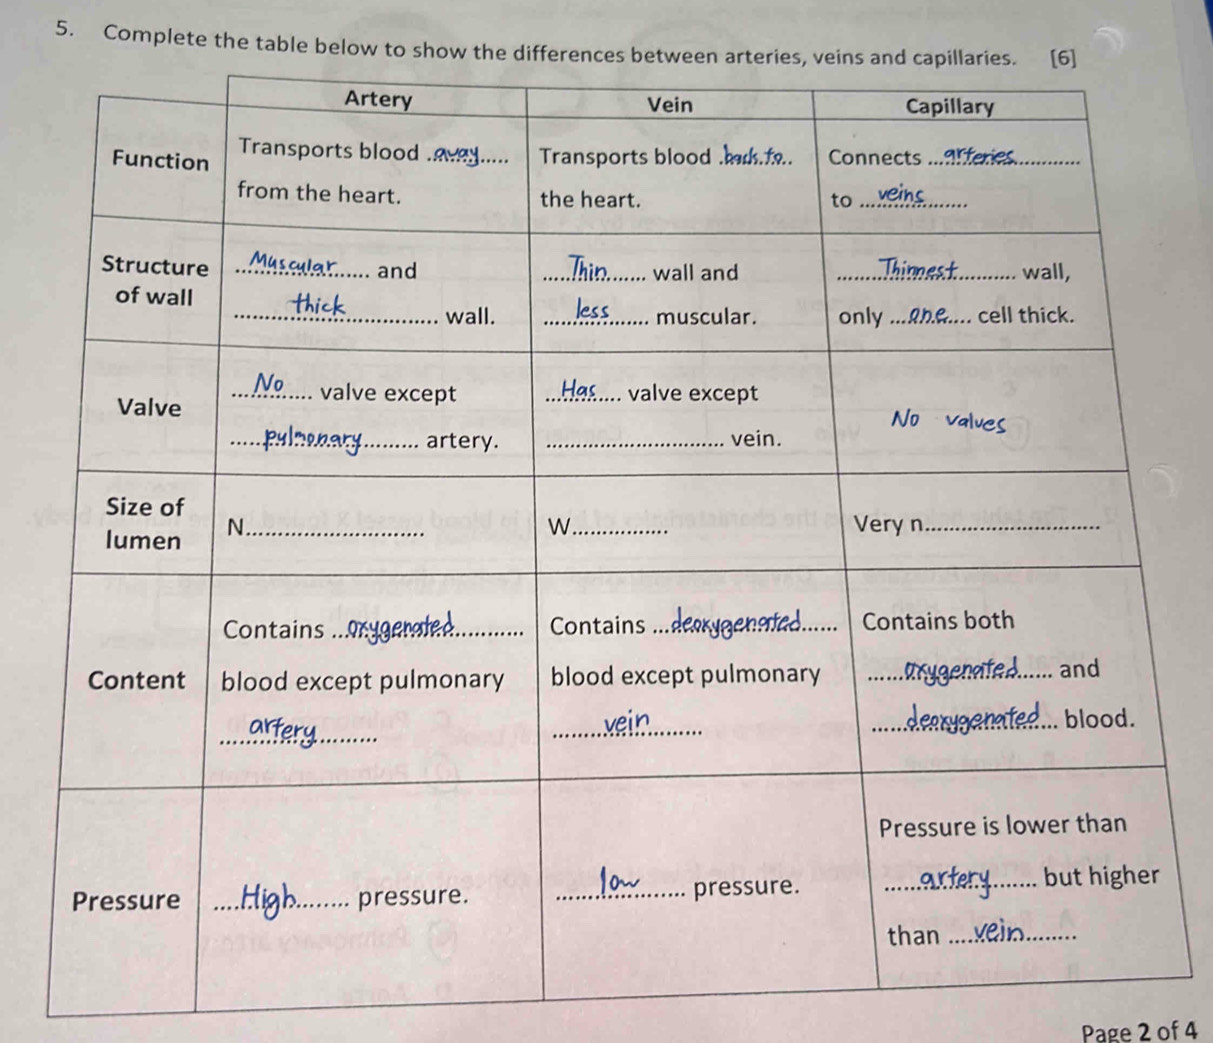 5. Complete the table below to show the differences between arteries, veins and capillaries. [6]
Artery Vein Capillary
Function
Transports blood ..away.....
from the heart.
Transports blood .back.to..
the heart.
Connects ...arteries............
to ....veins.........
Structure
of wall
....Muscular...... and
........thick............... wall.
....Thin....... wall and
.....less....... muscular.
.......Thinnest.......... wall,
only ...one.... cell thick.
Valve
....No..... valve except
.....pulmonary......... artery.
...Has.... valve except
............................. vein.
No valves
Size of
lumen
N.............................
W................
Very n.............................
Content
Contains ...oxygenated............
blood except pulmonary
.....artery..........
Contains ...deoxygenated......
blood except pulmonary
........vein.........
Contains both
......oxygenated...... and
......deoxygenated... blood.
Pressure
....High........ pressure.
.......low....... pressure.
Pressure is lower than
......artery....... but higher
than ....vein........
Page 2 of 4